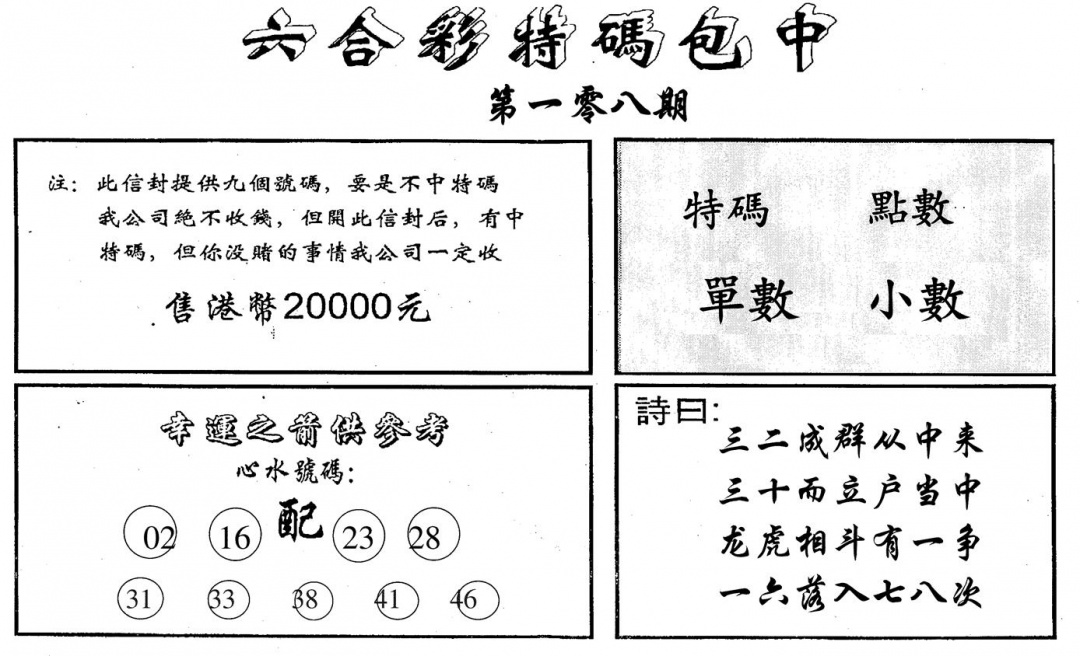 六合彩特碼包中
第一零八期
注：此信封提供九個號碼，要是不中特碼
我公司絕不收錢，但開此信封后，有中
特碼，但你没賭的事情我公司一定收
售港幣20000元
特碼 點數
單數 小數
幸運之箭供參考
心水號碼：
配
02 16 23 28
31 33 38 41 46
詩曰：
三二成群从中来
三十而立户当中
龙虎相斗有一争
一六落入七八次